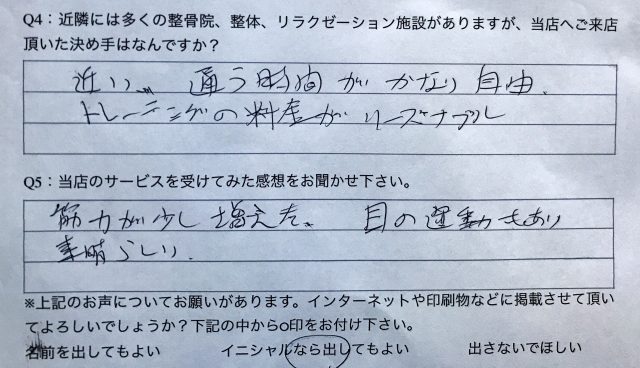 Q4：近隣には多くの整骨院、整体、リラクゼーション施設がありますが、当店へご来店
頂いた決め手はなんですか？
近い、通う時間がかなり自由、
トレーニングの料金がリーズナブル
Q5：当店のサービスを受けてみた感想をお聞かせ下さい。
筋力が少し増えた、目の運動もあり
素晴らしい、
※上記のお声についてお願いがあります。インターネットや印刷物などに掲載させて頂い
てよろしいでしょうか？下記の中から○印をお付け下さい。
名前を出してもよい　イニシャルなら出してもよい　出さないでほしい